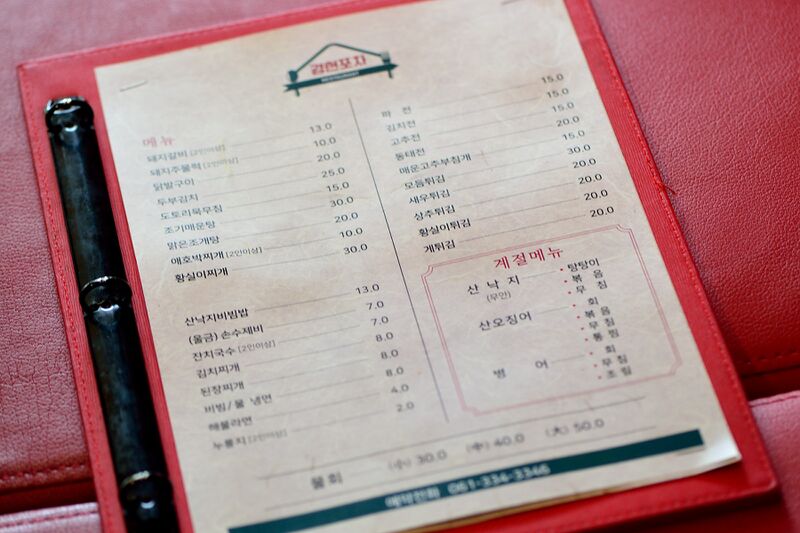 김현포차
RESTAURANT
메뉴
돼지갈비 [2인이상] 13.0
돼지주물럭 [2인이상] 10.0
닭발구이 20.0
두부김치 25.0
도토리묵무침 15.0
조기매운탕 30.0
맑은조개탕 20.0
애호박찌개 [2인이상] 10.0
황실이찌개 30.0
산낙지비빔밥 13.0
(울금) 손수제비 7.0
잔치국수 [2인이상] 7.0
김치찌개 8.0
된장찌개 8.0
비빔/물 냉면 8.0
해물라면 4.0
누룽지 [2인이상] 2.0
파 전 15.0
김치전 15.0
고추전 15.0
동태전 20.0
매운고추부침개 15.0
모듬튀김 30.0
새우튀김 20.0
상추튀김 20.0
황실이튀김 20.0
게튀김 20.0
계절메뉴
산 낙 지 • 탕탕이
(무안) • 볶 음
• 무 침
산오징어 • 회
• 볶 음
• 무 침
• 통 찜
병 어 • 회
• 무 침
• 조 림
물회 (小) 30.0 (中) 40.0 (大) 50.0
예약전화 061-334-3346